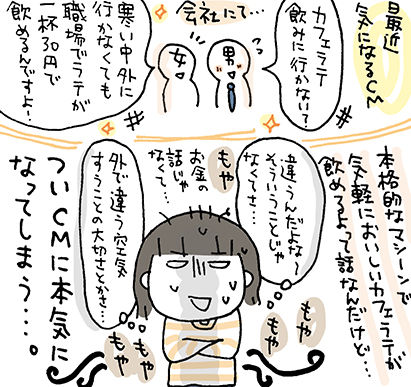 最近
気になるCM
会社にて…
カフェラテ
飲みに行かない?
男
女
寒い中外に
行かなくても
職場でラテが
一杯30円で
飲めるんですよ!
本格的なマシーンで
気軽においしいカフェラテが
飲めるよって話なんだけど…
違うんだよな〜
そういうことじゃ
なくてさ…
もや
お金の
話じゃ
なくて…
外で違う空気
すうことの大切さとかさ…
もや
もや
もや
もや
もや
ついCMに本気に
なってしまう…。